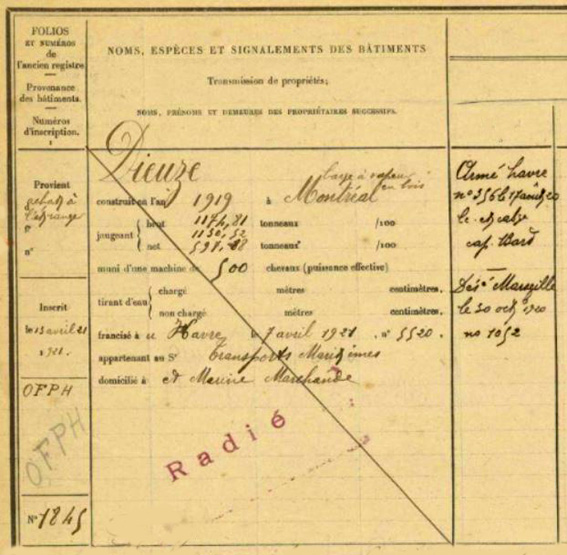 FOLIOS
ET NUMÉROS
de
l'ancien registre
Provenance
des bâtiments.
Numéros
d'inscription.
1
NOMS, ESPÈCES ET SIGNALEMENTS DES BÂTIMENTS
Transmission de propriétés;
NOMS, PRÉNOMS ET DEMEURES DES PROPRIÉTAIRES SUCCESSIFS.
Provient
achat à
l'étranger
n°
Inscrit
le 15 avril 21
1921.
OFPH
OFPH
N° 1845
Dieuze
à vapeur
en bois
construit en l'an 1919 à Montréal
jaugeant
brut 1174,81 tonneaux /100
1132,52
net 597,88 tonneaux /100
muni d'une machine de 500 chevaux (puissance effective)
tirant d'eau
chargé mètres centimètres.
non chargé mètres centimètres.
francisé à u Havre le 7 avril 1921 . n° 5520 .
appartenant au Sr Transports Maritimes
domicilié à et Marine Marchande
Radié
Armé havre
n° 356 le 17 août 20
cap. Bard
Dés° Marseille
le 30 octb 1920
no 1052